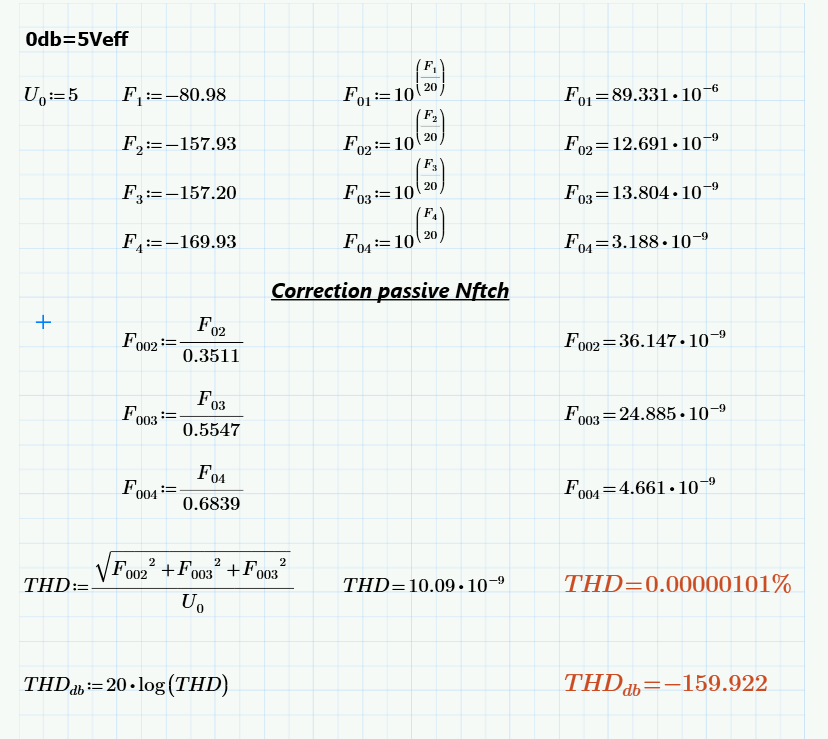 0db=5Veff
U₀:=5 F₁:=−80.98 F₀₁:=10^(F₁/20) F₀₁=89.331•10⁻⁶
F₂:=−157.93 F₀₂:=10^(F₂/20) F₀₂=12.691•10⁻⁹
F₃:=−157.20 F₀₃:=10^(F₃/20) F₀₃=13.804•10⁻⁹
F₄:=−169.93 F₀₄:=10^(F₄/20) F₀₄=3.188•10⁻⁹
Correction passive Nftch
F₀₀₂:=F₀₂/0.3511 F₀₀₂=36.147•10⁻⁹
F₀₀₃:=F₀₃/0.5547 F₀₀₃=24.885•10⁻⁹
F₀₀₄:=F₀₄/0.6839 F₀₀₄=4.661•10⁻⁹
THD:=√(F₀₀₂²+F₀₀₃²+F₀₀₃²)/U₀ THD=10.09•10⁻⁹ THD=0.00000101%
THD_db:=20•log(THD) THD_db=−159.922